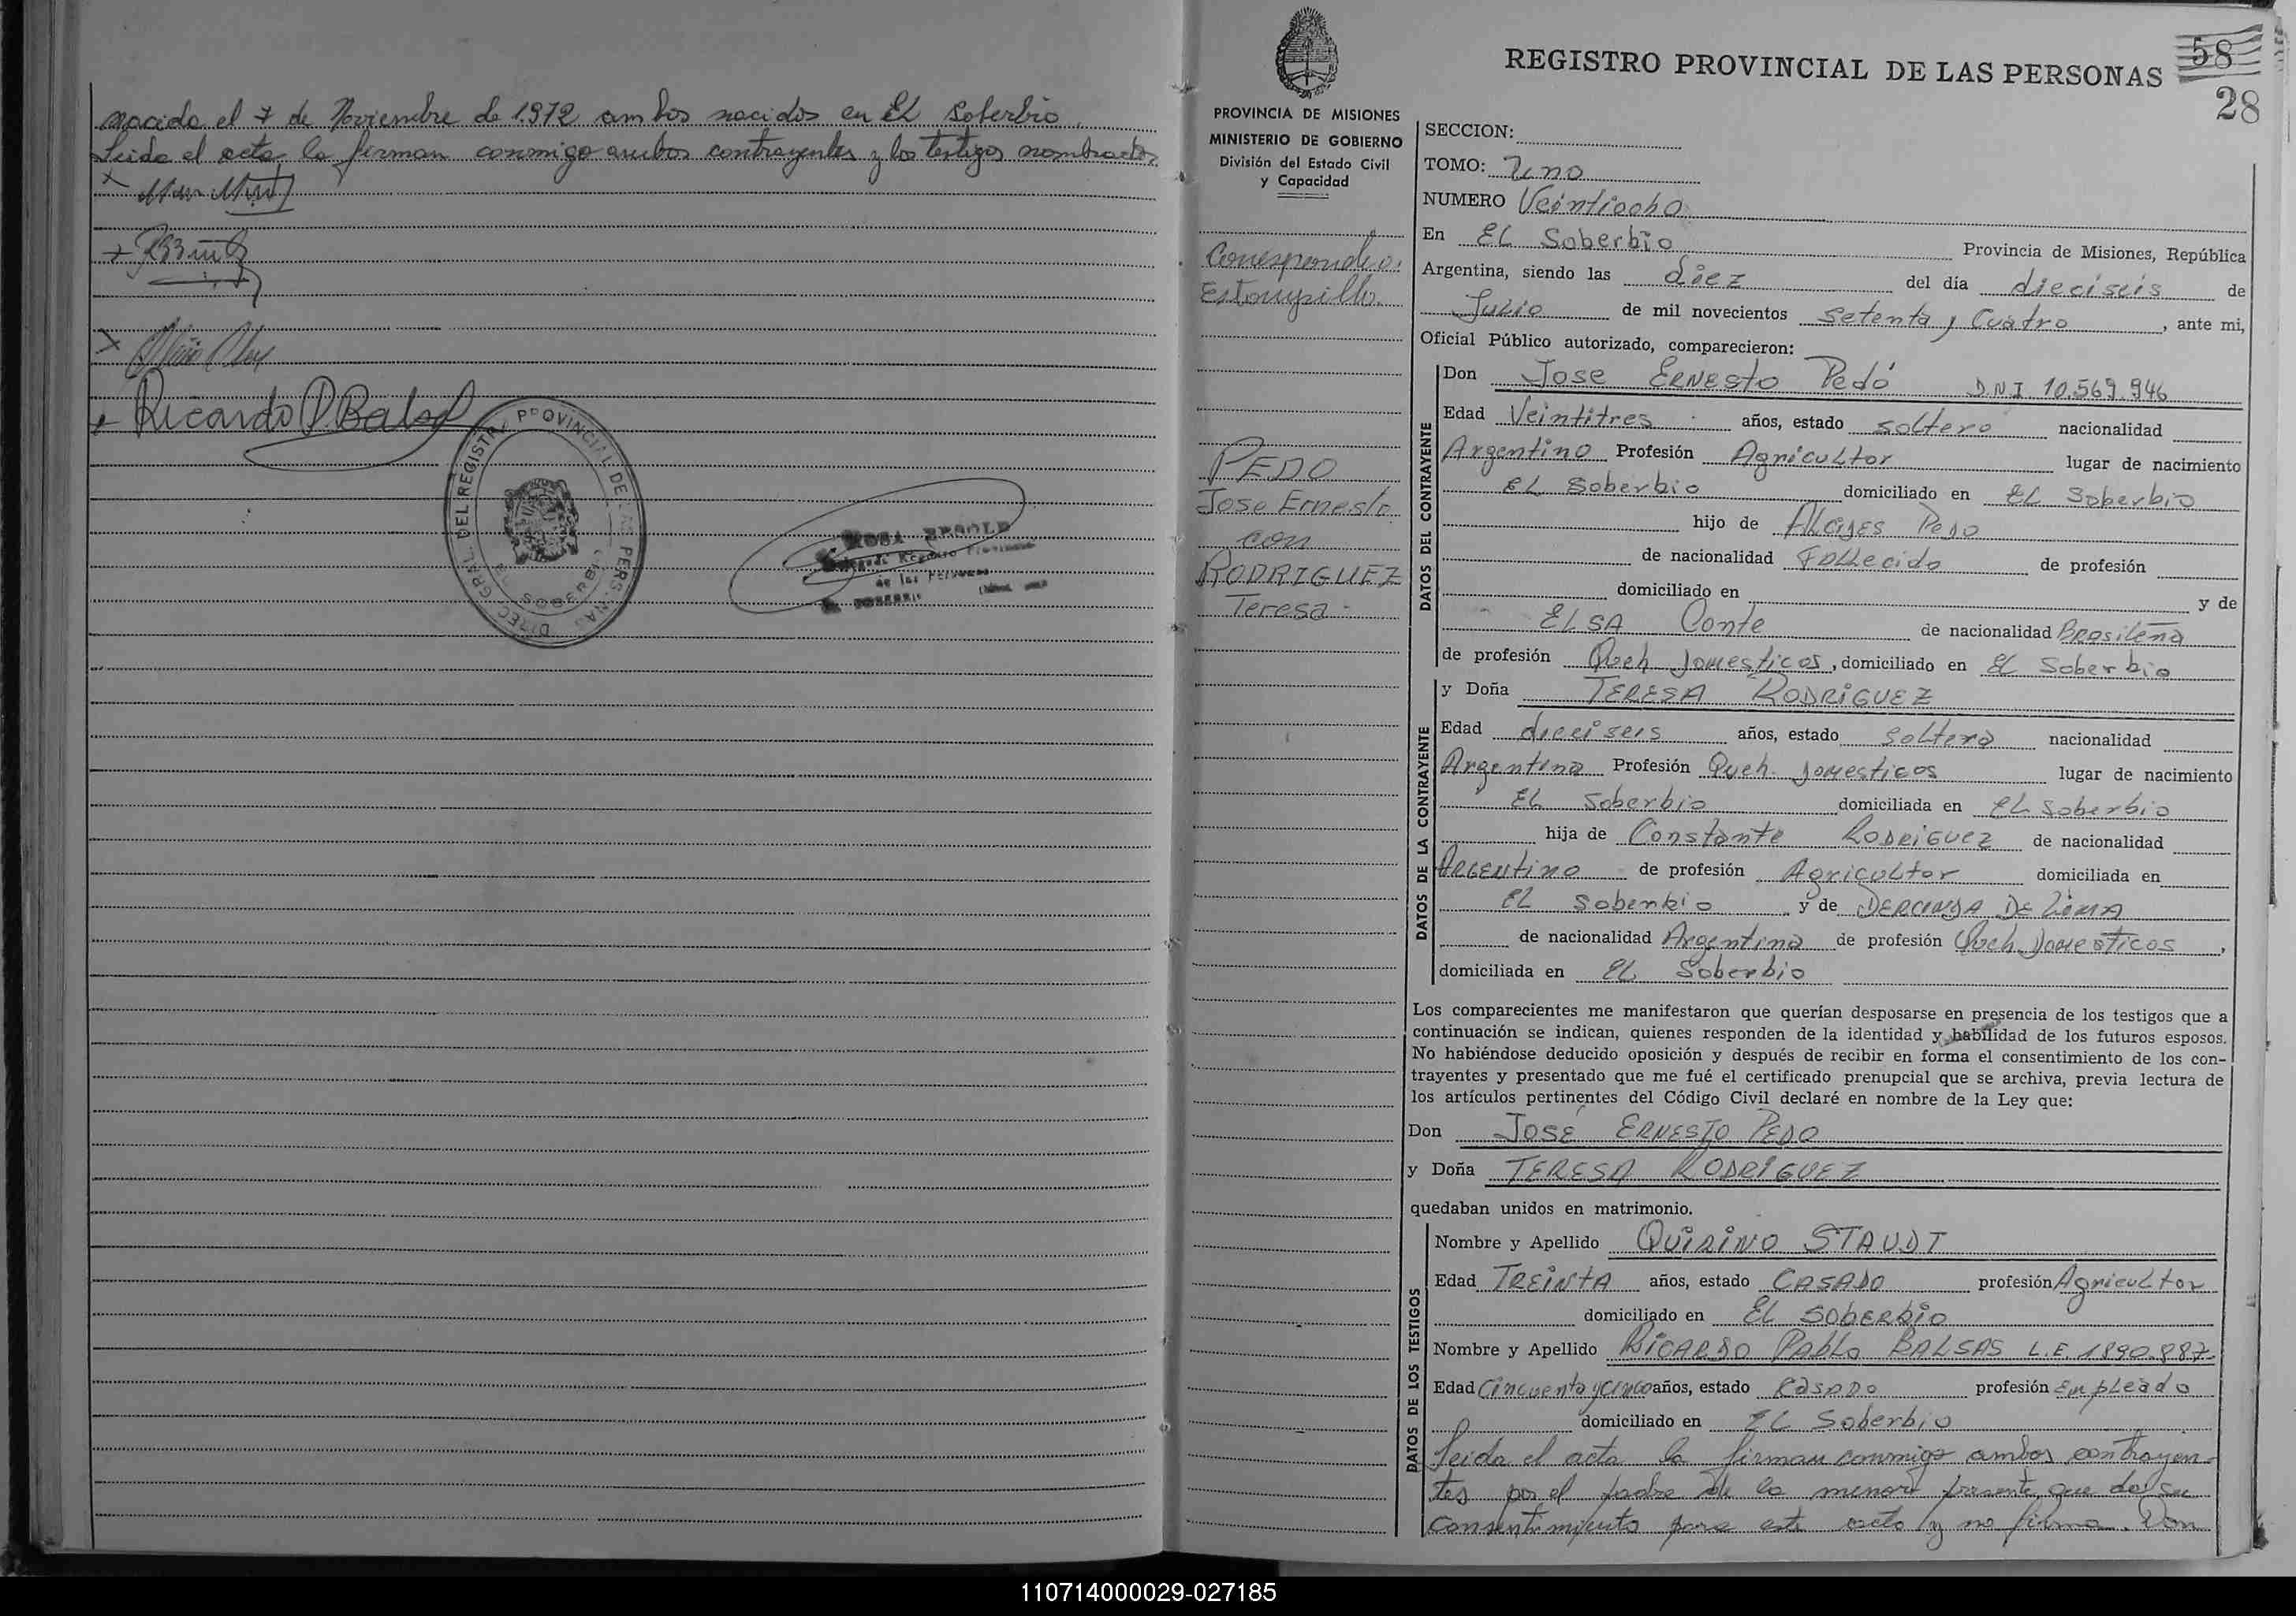 nacida el 7 de Noviembre de 1.972 ambos nacidos en El Soberbio.
Leida el acta la firman conmigo ambos contrayentes y los testigos nombrados
Ricardo P Balsa
DIREC. GRAL. DEL REGISTRO PROVINCIAL DE LAS PERSONAS
SOBERBIO
ROSA
Registro Provincial
de las Personas
PROVINCIA DE MISIONES
MINISTERIO DE GOBIERNO
División del Estado Civil
y Capacidad
Corresponde a
Estampilla
PEDO
Jose Ernesto
con
RODRIGUEZ
Teresa.-
REGISTRO PROVINCIAL DE LAS PERSONAS
58
28
SECCION:
TOMO: Uno
NUMERO Veintiocho
En EL Soberbio Provincia de Misiones, República
Argentina, siendo las diez del día dieciseis de
Julio de mil novecientos Setenta y Cuatro, ante mi,
Oficial Público autorizado, comparecieron:
DATOS DEL CONTRAYENTE
Don Jose ERNESto Pedó D.N.I. 10.569.946
Edad Veintitres años, estado soltero nacionalidad
Argentino Profesión Agricultor lugar de nacimiento
EL Soberbio domiciliado en EL Soberbio
hijo de ALCIDES Pedo
de nacionalidad Fallecido de profesión
domiciliado en y de
ELSA Conte de nacionalidad Brasileña
de profesión Queh. Domesticos, domiciliado en El Soberbio
DATOS DE LA CONTRAYENTE
y Doña TERESA RODRIGUEZ
Edad dieciseis años, estado Soltera nacionalidad
Argentina Profesión Queh. Domesticos lugar de nacimiento
EL Soberbio domiciliada en EL Soberbio
hija de Constante RODRIGUEZ de nacionalidad
ARGENtino de profesión Agricultor domiciliada en
EL Soberbio y de DERCINDA DE LIMA
de nacionalidad Argentina de profesión Queh. Domesticos,
domiciliada en EL Soberbio
Los comparecientes me manifestaron que querían desposarse en presencia de los testigos que a
continuación se indican, quienes responden de la identidad y habilidad de los futuros esposos.
No habiéndose deducido oposición y después de recibir en forma el consentimiento de los con-
trayentes y presentado que me fué el certificado prenupcial que se archiva, previa lectura de
los artículos pertinentes del Código Civil declaré en nombre de la Ley que:
Don JOSÉ ERNESTO PEDO
y Doña TERESA RODRIGUEZ
quedaban unidos en matrimonio.
DATOS DE LOS TESTIGOS
Nombre y Apellido QUIRINO STAUDT
Edad TREINTA años, estado CASADO profesión Agricultor
domiciliado en EL SOBERBIO
Nombre y Apellido RICARDO PABLO BALSAS L.E. 1890.887
Edad Cincuenta y cinco años, estado CASADO profesión Empleado
domiciliado en EL Soberbio
Leida el acta la firman conmigo ambos contrayen-
tes por el padre de la menor presente que da su
consentimiento para este acto y no firma. Don
110714000029-027185